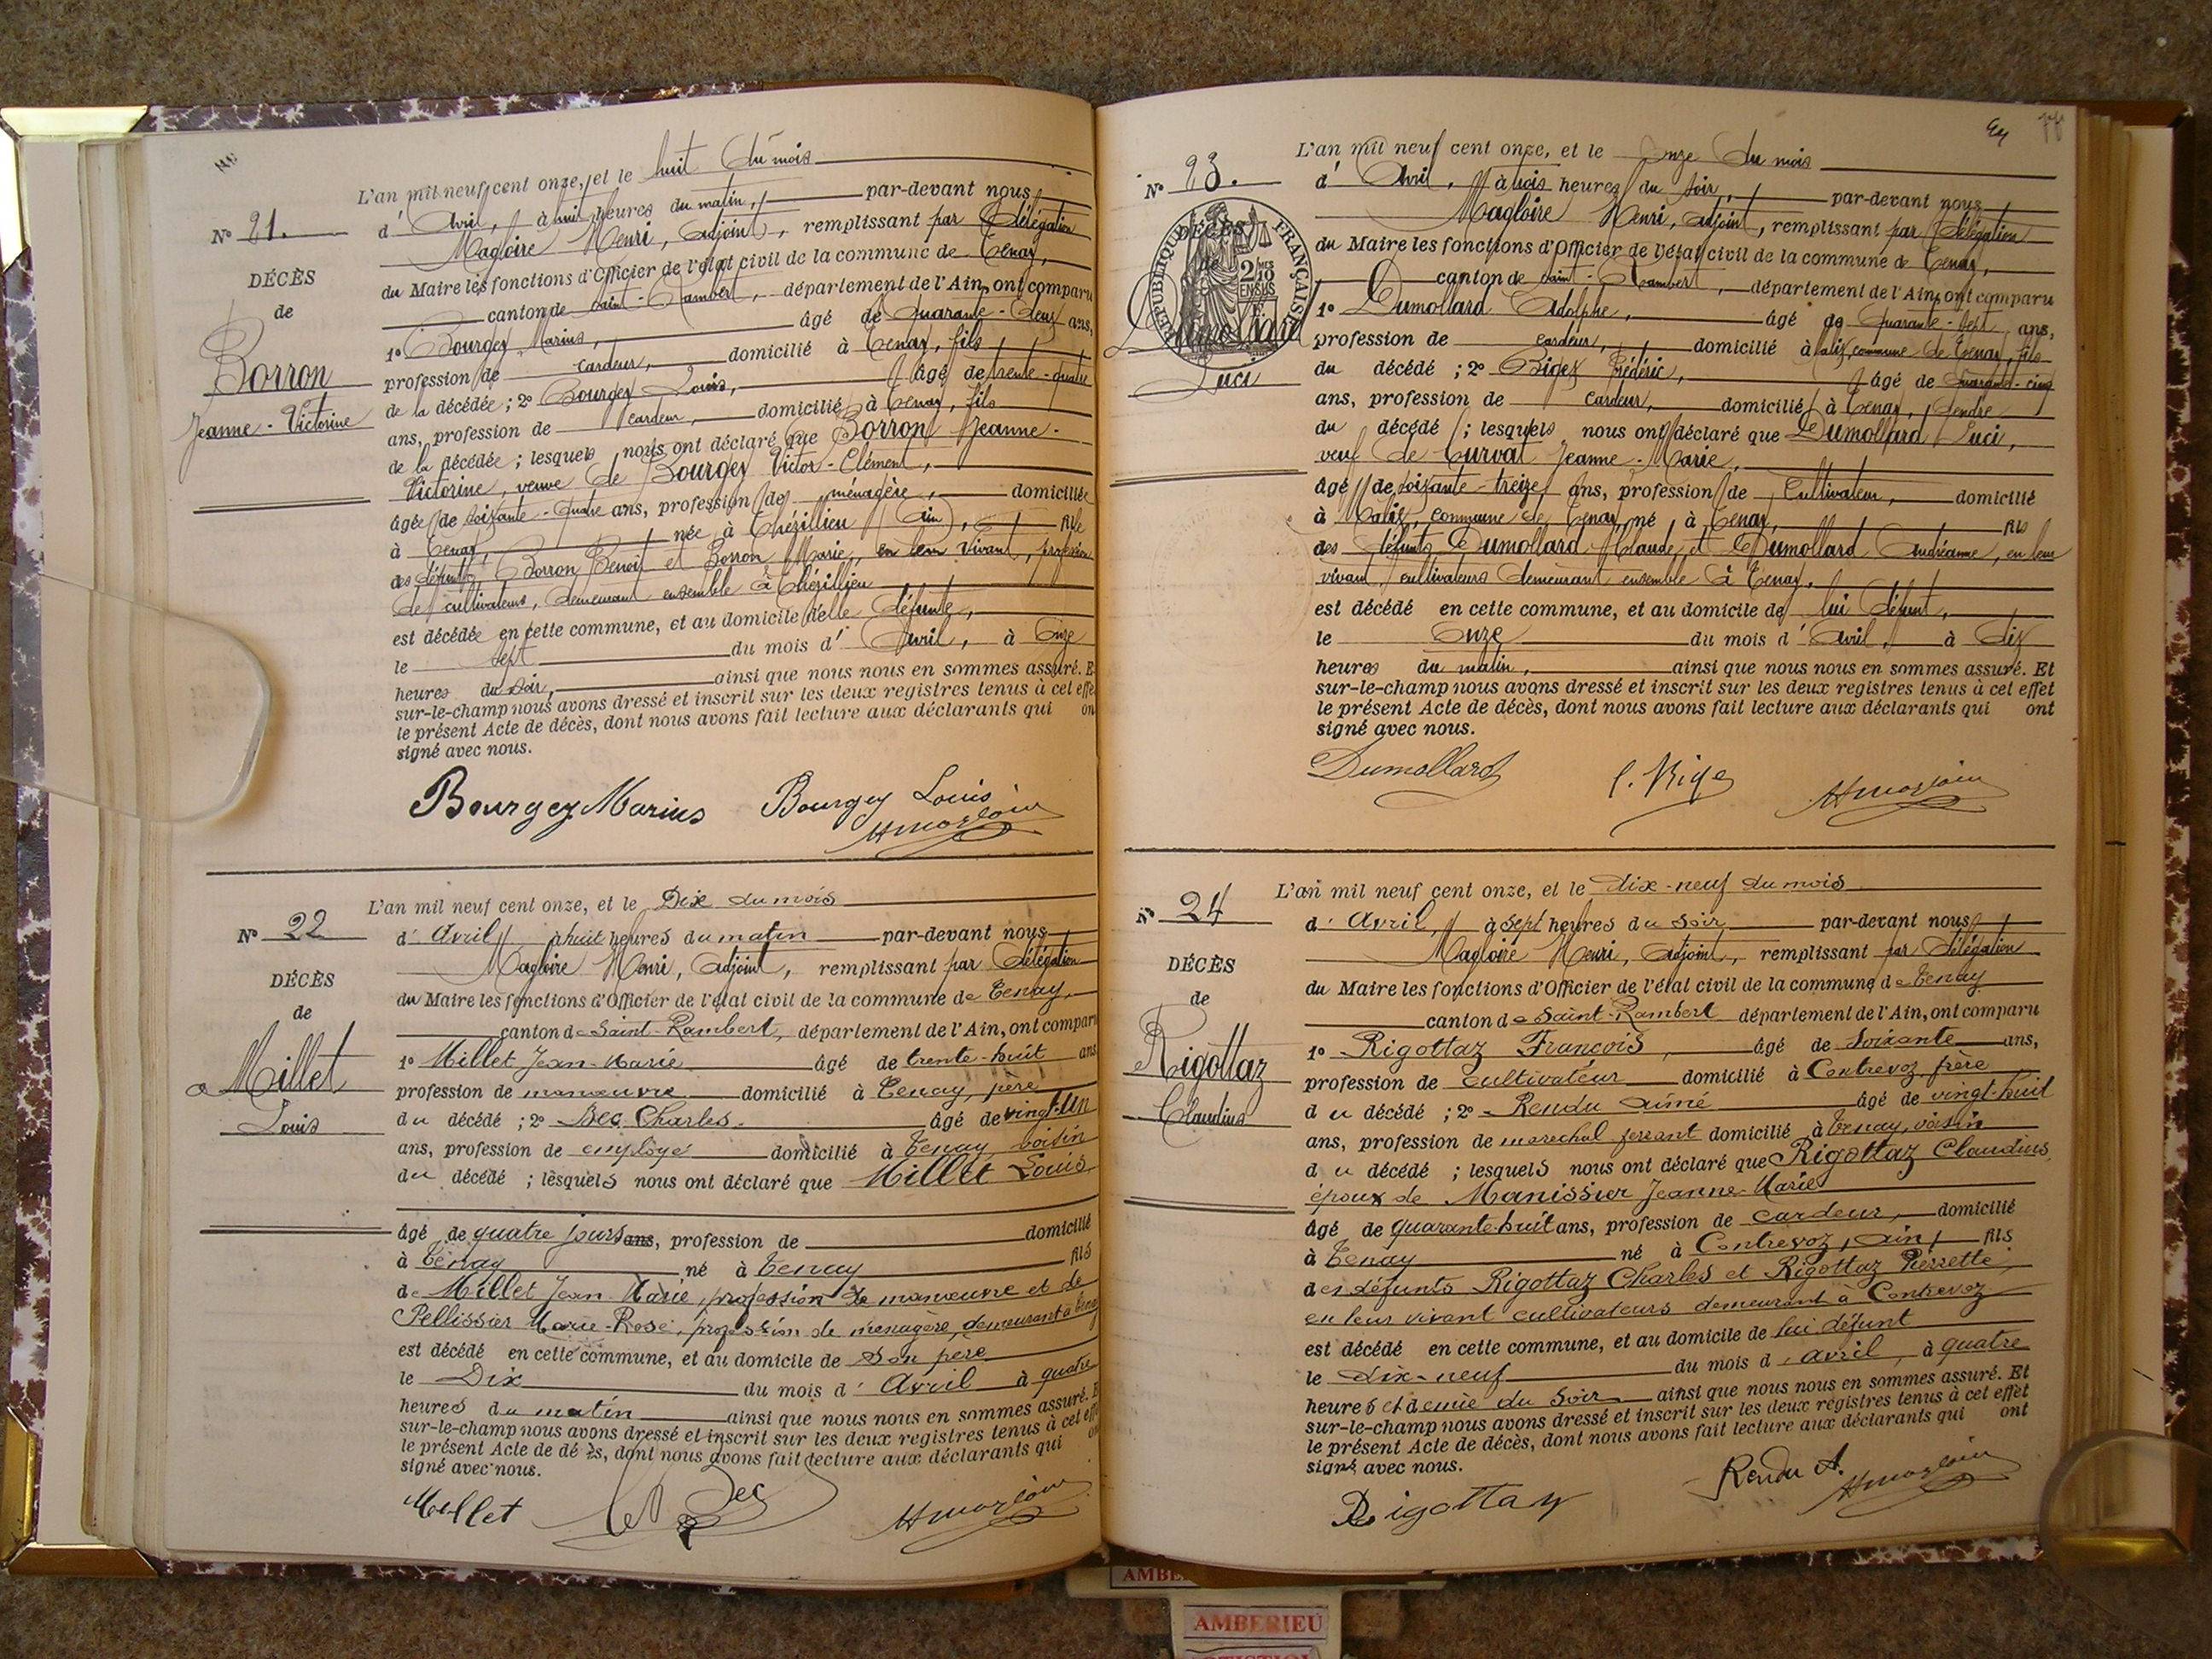 L'an mil neuf cent onze, et le huit du mois
N° 21.
d' Avril, à huit heures du matin, par-devant nous
Magloire Henri, adjoint, remplissant par délégation
du Maire les fonctions d'Officier de l'état civil de la commune de Tenay,
canton de Saint-Rambert, département de l'Ain, ont comparu
DÉCÈS
de
Borron
Jeanne-Victorine
1° Bourgey Marius, âgé de quarante-deux ans,
profession de cardeur, domicilié à Tenay, fils
de la décédée ; 2° Bourgey Louis, âgé de trente-quatre
ans, profession de cardeur, domicilié à Tenay, fils
de la décédée ; lesquels nous ont déclaré que Borron Jeanne-
Victorine, veuve de Bourgey Victor-Clément,
âgée de soixante-quatre ans, profession de ménagère, domiciliée
à Tenay, née à Thézillieu (Ain), fille
des défunts Borron Benoit et Borron Marie, en leur vivant, profession
de cultivateurs, demeurant ensemble à Thézillieu
est décédée en cette commune, et au domicile d'elle défunte,
le sept du mois d' Avril, à onze
heures du soir, ainsi que nous nous en sommes assuré. E
sur-le-champ nous avons dressé et inscrit sur les deux registres tenus à cet effe
le présent Acte de décès, dont nous avons fait lecture aux déclarants qui on
signé avec nous.
Bourgey Marius Bourgey Louis
HMagloire
L'an mil neuf cent onze, et le Dix du mois
N° 22
d' Avril à huit heures du matin par-devant nous
Magloire Henri, adjoint, remplissant par délégation
du Maire les fonctions d'Officier de l'état civil de la commune de Tenay,
canton de Saint-Rambert, département de l'Ain, ont comparu
DÉCÈS
de
Millet
Louis
1° Millet Jean-Marie âgé de trente-huit ans
profession de manœuvre domicilié à Tenay, père
du décédé ; 2° Bec Charles. âgé de vingt-un
ans, profession de employé domicilié à Tenay voisin
du décédé ; lesquels nous ont déclaré que Millet Louis
âgé de quatre jours ans, profession de domicilié
à Tenay né à Tenay fils
de Millet Jean-Marie, profession de manœuvre et de
Pellissier Marie-Rose, profession de ménagère, demeurant à Tenay
est décédé en cette commune, et au domicile de son père
le Dix du mois d' Avril à quatre
heures du matin ainsi que nous nous en sommes assuré. E
sur-le-champ nous avons dressé et inscrit sur les deux registres tenus à cet eff
le présent Acte de dé ès, dont nous avons fait lecture aux déclarants qui on
signé avec nous.
Millet Bec HMagloire
44
L'an mil neuf cent onze, et le onze du mois
N° 23.
d' Avril, à trois heures du soir, par-devant nous
Magloire Henri, adjoint, remplissant par délégation
du Maire les fonctions d'Officier de l'état civil de la commune de Tenay,
canton de Saint-Rambert, département de l'Ain, ont comparu
DÉCÈS
de
RÉPUBLIQUE FRANÇAISE
2/10 MES
EN SUS
Dumollard
Luci
1° Dumollard Adolphe, âgé de quarante-sept ans,
profession de cardeur, domicilié à Malix commune de Tenay, fils
du décédé ; 2° Bigex Frédéric, âgé de quarante-cinq
ans, profession de cardeur, domicilié à Tenay, gendre
du décédé ; lesquels nous ont déclaré que Dumollard Luci,
veuf de Curval Jeanne-Marie,
âgé de soixante-treize ans, profession de cultivateur, domicilié
à Malix, commune de Tenay né à Tenay, fils
des défunts Dumollard Claude et Dumollard Andréanne, en leur
vivant, cultivateurs demeurant ensemble à Tenay,
est décédé en cette commune, et au domicile de lui défunt,
le onze du mois d' Avril, à dix
heures du matin, ainsi que nous nous en sommes assuré. Et
sur-le-champ nous avons dressé et inscrit sur les deux registres tenus à cet effet
le présent Acte de décès, dont nous avons fait lecture aux déclarants qui ont
signé avec nous.
Dumollard HMagloire
L'an mil neuf cent onze, et le dix-neuf du mois
N° 24
d' Avril, à sept heures du soir par-devant nous
Magloire Henri, adjoint, remplissant par délégation
du Maire les fonctions d'Officier de l'état civil de la commune de Tenay
canton de Saint-Rambert département de l'Ain, ont comparu
DÉCÈS
de
Rigottaz
Claudius
1° Rigottaz François, âgé de soixante ans,
profession de cultivateur domicilié à Contrevoz frère
du décédé ; 2° Rendu Aimé âgé de vingt-huit
ans, profession de marechal ferrant domicilié à Tenay, voisin
du décédé ; lesquels nous ont déclaré que Rigottaz Claudius,
époux de Manissier Jeanne-Marie
âgé de quarante-huit ans, profession de cardeur, domicilié
à Tenay né à Contrevoz, Ain, fils
des défunts Rigottaz Charles et Rigottaz Pierrette,
en leur vivant cultivateurs demeurant à Contrevoz
est décédé en cette commune, et au domicile de lui défunt
le dix-neuf du mois d' avril, à quatre
heures et demie du soir ainsi que nous nous en sommes assuré. Et
sur-le-champ nous avons dressé et inscrit sur les deux registres tenus à cet effet
le présent Acte de décès, dont nous avons fait lecture aux déclarants qui ont
signé avec nous.
Rigottaz Rendu A. HMagloire
AMBERIEU